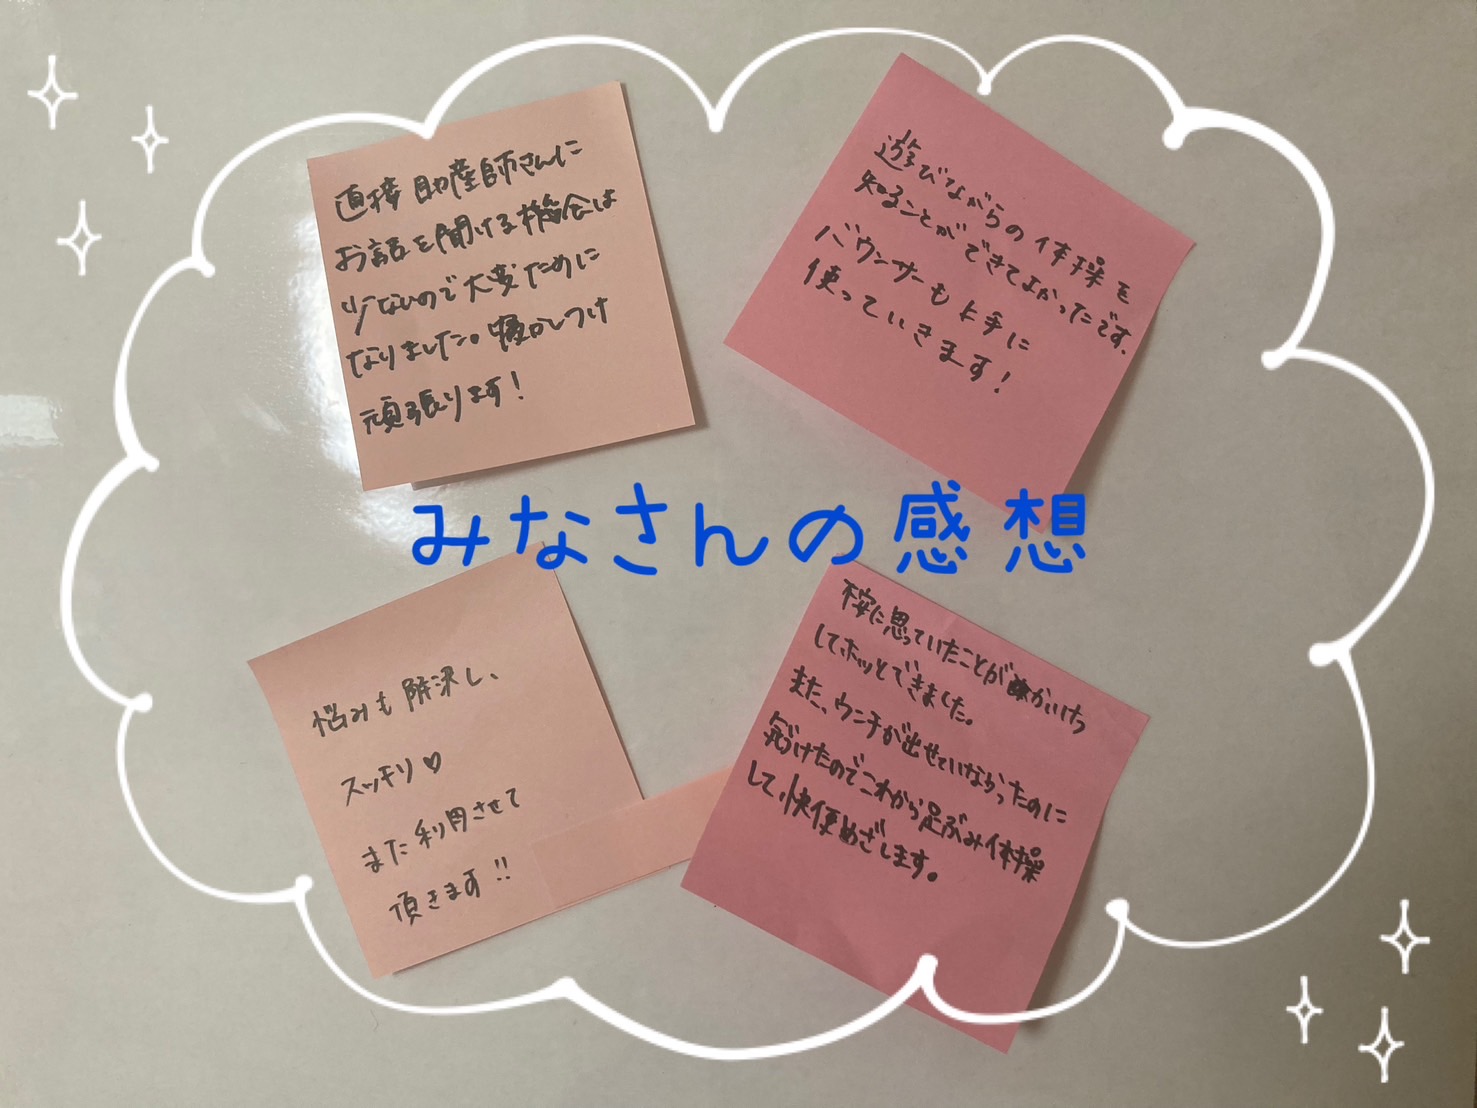 直接助産師さんに
お話を聞ける機会は
少ないので大変ために
なりました。寝かしつけ
頑張ります!
遊びながらの体操を
知ることができてよかったです。
バウンサーも上手に
使っていきます!
みなさんの感想
悩みも解決し、
スッキリ♡
また利用させて
頂きます!!
不安に思っていたことがかいけつ
してホッとできました。
また、ウンチが出せていなかったのに
気づけたのでこれから足ぶみ体操
して、快便めざします。